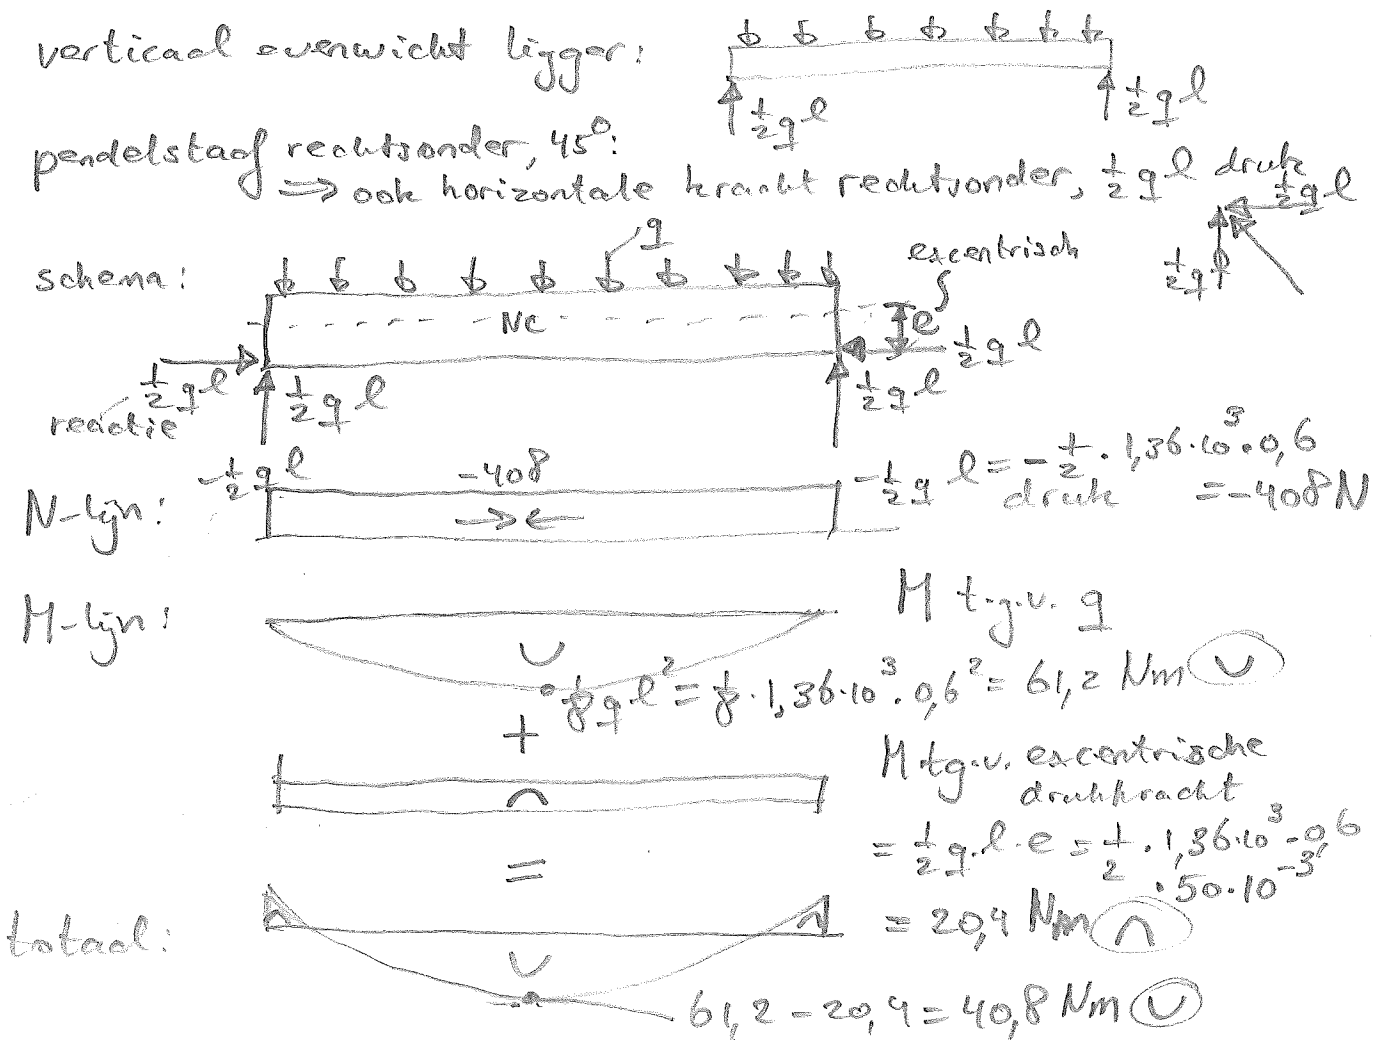 verticaal evenwicht ligger:
½ql
½ql
pendelstaaf rechtsonder, 45°:
⇒ ook horizontale kracht rechtsonder, ½ql druk
½ql
½ql
schema:
q
excentrisch
NC
e
½ql
½ql
reactie
½ql
½ql
N-lijn:
-½ql
-408
→←
-½ql = -½ · 1,36·10³ · 0,6
druk = -408 N
M-lijn:
M t.g.v. q
⅛q·l² = ⅛ · 1,36·10³ · 0,6² = 61,2 Nm ∪
+
M tg.v. excentrische
drukkracht
= ½q·l·e = ½ · 1,36·10³ · 0,6
· 50·10⁻³
= 20,4 Nm ∩
=
totaal:
61,2 - 20,4 = 40,8 Nm ∪